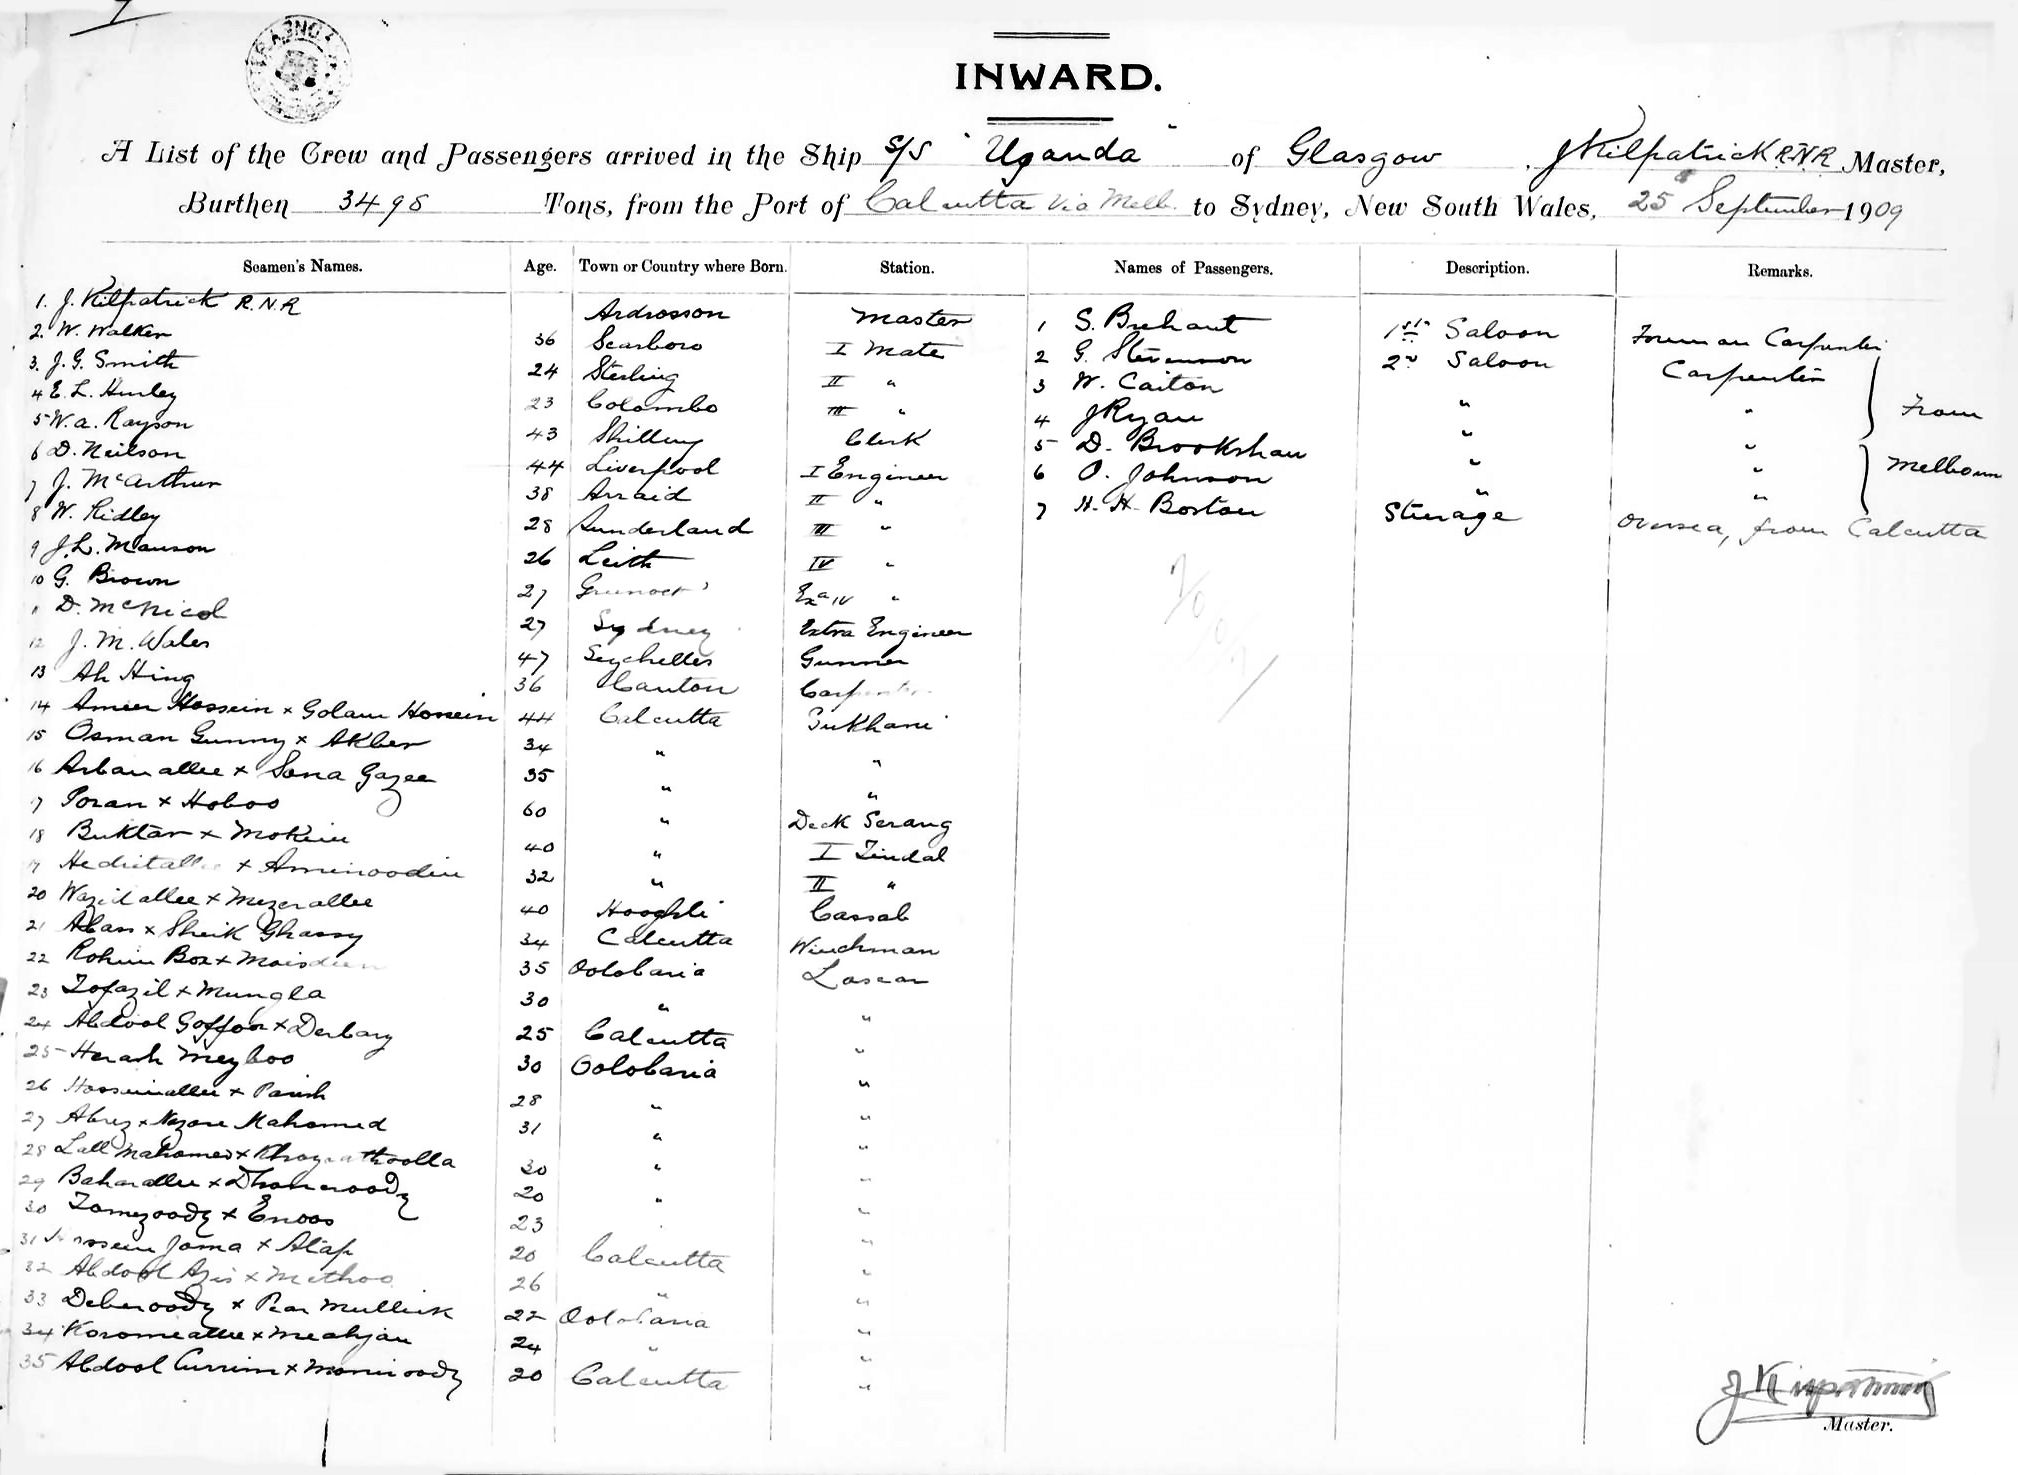 INWARD.
A List of the Crew and Passengers arrived in the Ship S/S "Uganda" of Glasgow, J Kilpatrick R.N.R Master,
Burthen 3498 Tons, from the Port of Calcutta via Melb. to Sydney, New South Wales, 25 September 1909
Seamen's Names. Age. Town or Country where Born. Station. Names of Passengers. Description. Remarks.
1. J. Kilpatrick R.N.R Ardrossan Master 1 S. Brehaut 1st Saloon Foreman Carpenter
2. W. Walker 36 Scarboro I Mate 2 G. Stevenson 2nd Saloon Carpenter
3. J. G. Smith 24 Sterling II " 3 W. Caiton " " From
4 E. L. Hurley 23 Colombo III " 4 J Ryan " "
5 W. A. Rayson 43 Clerk 5 D. Brookshaw " " Melbourn
6 D. Neilson 44 Liverpool I Engineer 6 O. Johnson " "
7 J. McArthur 38 II " 7 H. H. Boston Steerage Oversea, from Calcutta
8 W. Ridley 28 Sunderland III "
9 J. L. Manson 26 Leith IV "
10 G. Brown 27 Greenock Exa IV "
11 D. McNicol 27 Sydney Extra Engineer
12 J. M. Wales 47 Seychelles Gunner
13 Ah Hing 36 Canton Carpenter
14 Ameer Hossein x Golam Hossein 44 Calcutta Sukhani
15 Osman Gunny x Akber 34 " "
16 Arban allee x Sona Gazee 35 " "
17 Poran x Hoboo 60 " Deck Serang
18 Buktar x Mokim 40 " I Tindal
19 x Aminoodin 32 " II "
20 Wazid allee x Mezer allee 40 Hooghli Cassab
21 Abas x Sheik Ghassy 34 Calcutta Winchman
22 Rohim Box x 35 Oolobaria Lascar
23 Tofazil x Mungla 30 " "
24 Abdool Goffoor x Derbary 25 Calcutta "
25 Harash Meyboo 30 Oolobaria "
26 Hosseinallee x Parish 28 " "
27 Abrez x Nazare Mahomed 31 " "
28 Lall Mahomed x 30 " "
29 Baharallee x 20 " "
30 Tomezoody x Enoos 23 "
31 Hossein Joma x Alap 20 Calcutta "
32 Abdool Azis x Methoo 26 " "
33 Deberoody x Pear Mullick 22 Oolobaria "
34 Koromeallee x Meahjan 24 " "
35 Abdool Currim x Moniroody 20 Calcutta "
J Kilpatrick
Master.